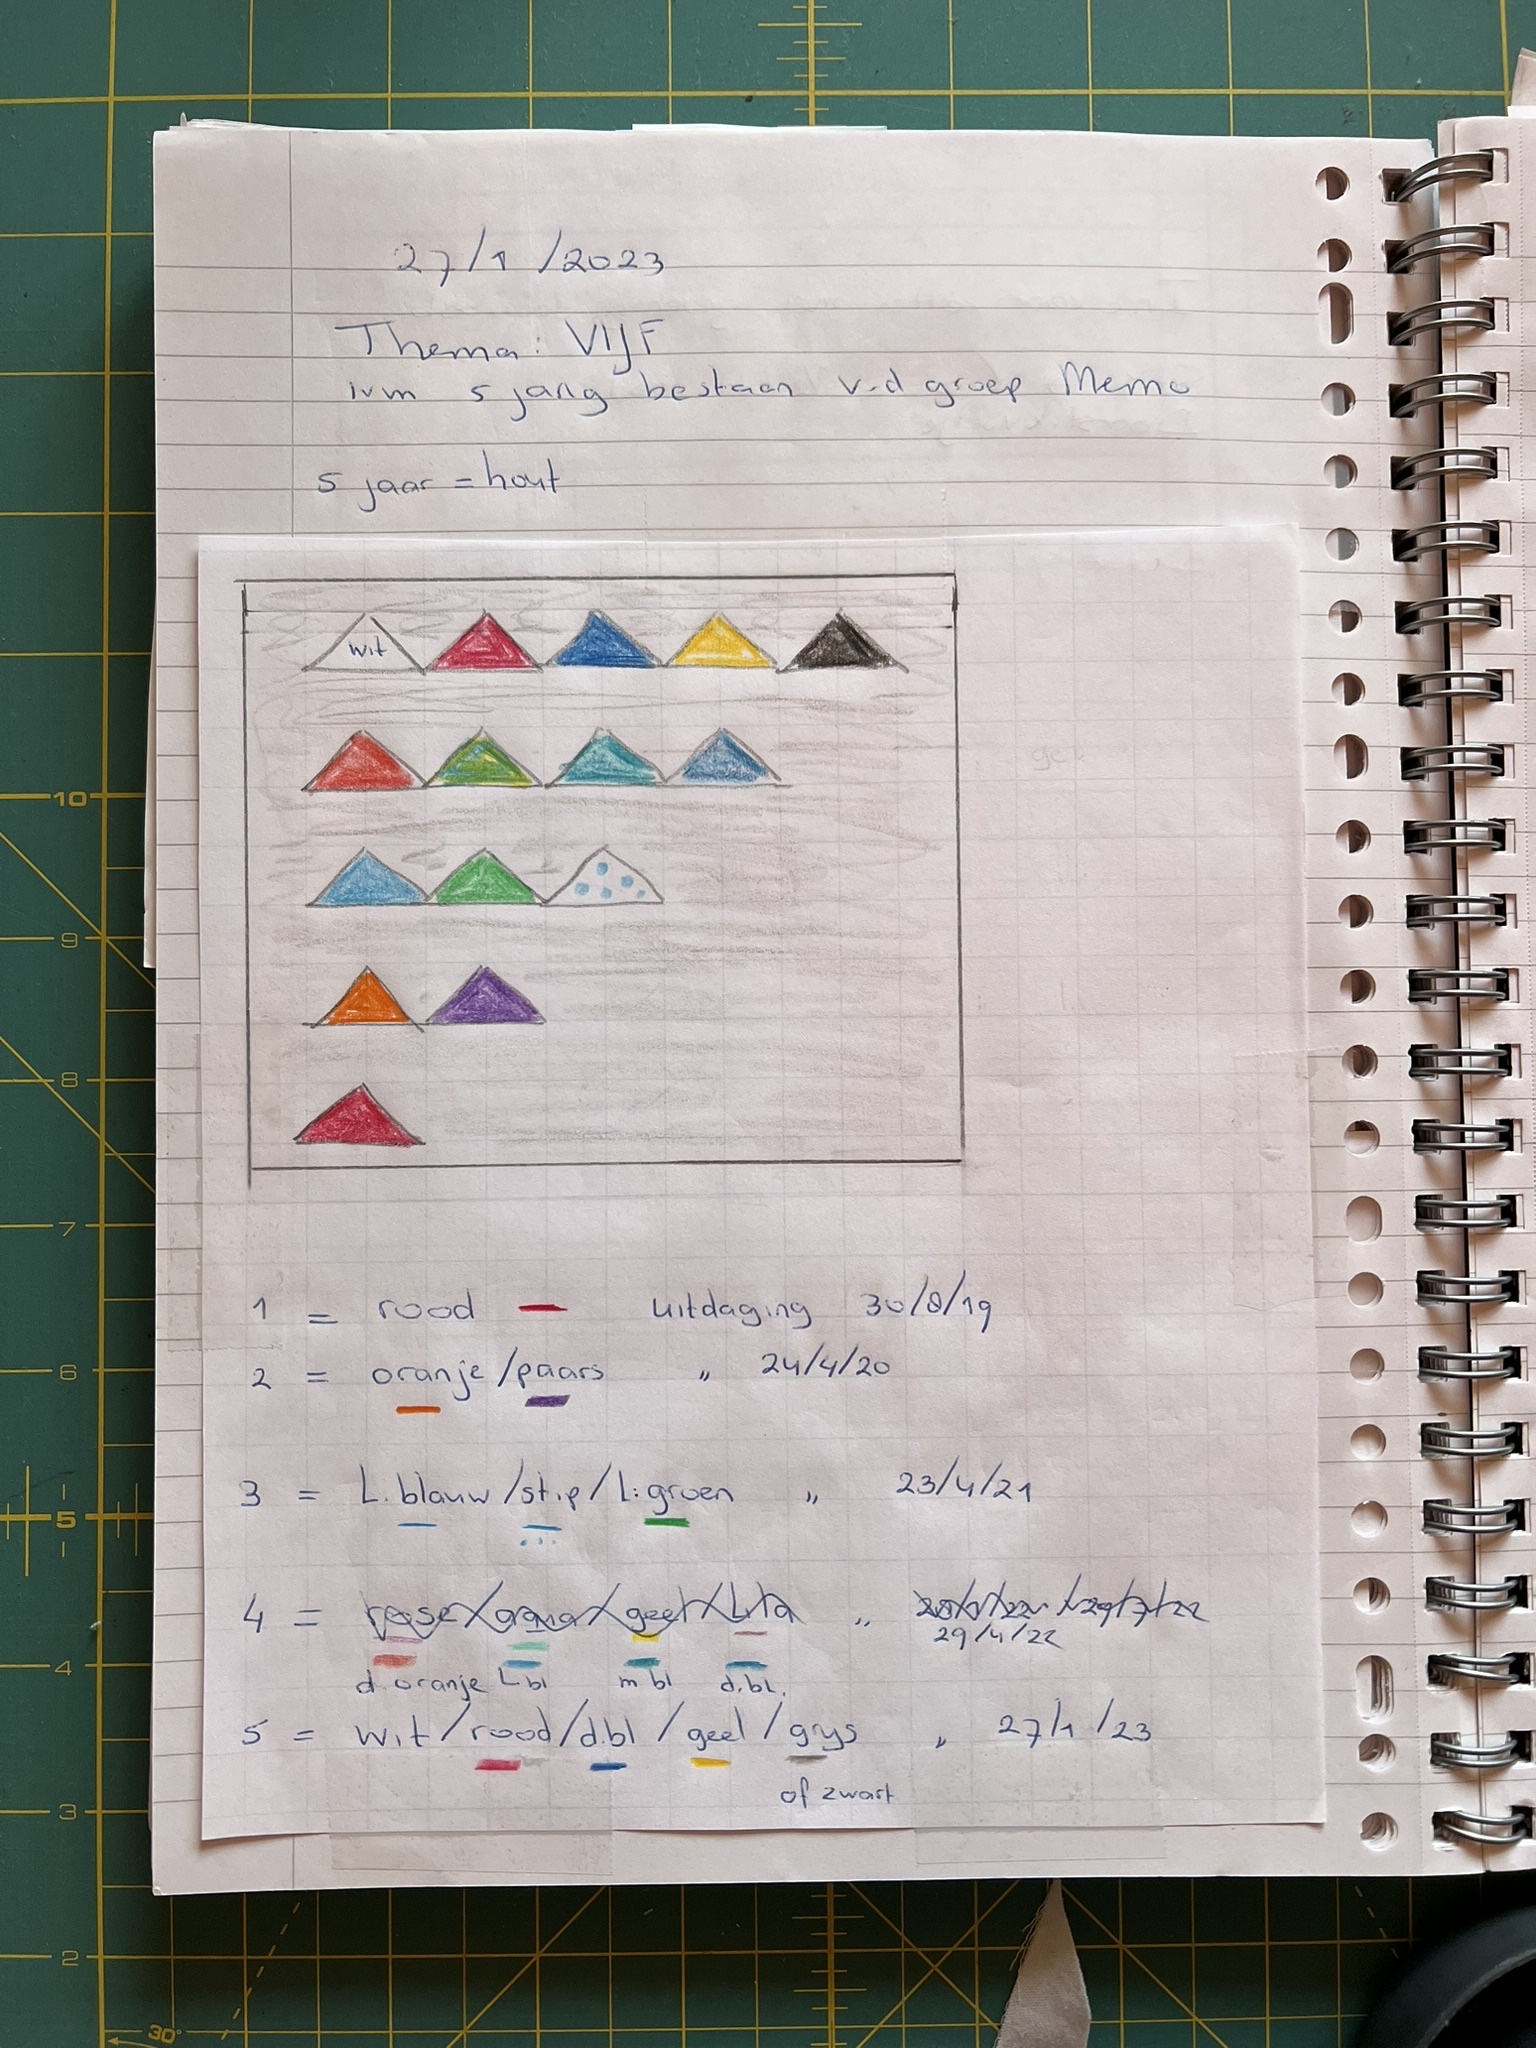 27/1/2023
Thema: VIJF
ivm 5 jarig bestaan v.d groep Memo
5 jaar = hout
wit
1 = rood uitdaging 30/8/19
2 = oranje/paars " 24/4/20
3 = L.blauw/stip/L.groen " 23/4/21
4 = rose/aqua/geel/lila "
29/4/22
d.oranje L bl m bl d.bl.
5 = wit/rood/d.bl/geel/grijs " 27/1/23
of zwart
10
9
8
7
6
5
4
3
2
30°